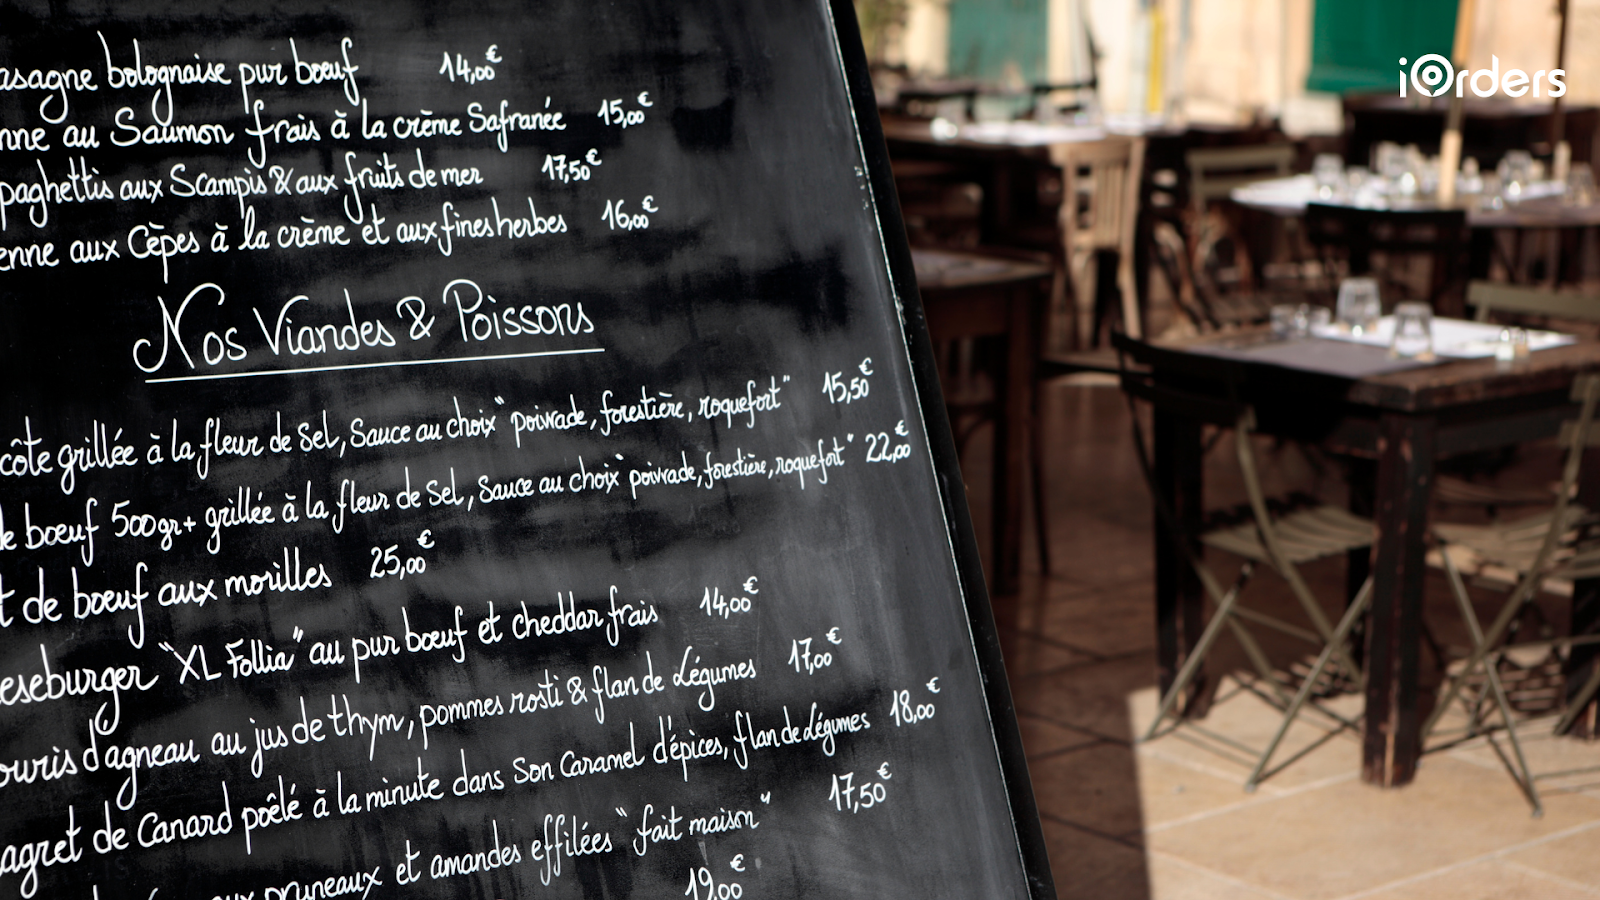 asagne bolognaise pur bœuf 14,00€
nne au Saumon frais à la crème Safranée 15,00€
paghettis aux Scampis & aux fruits de mer 17,50€
enne aux Cèpes à la crème et aux fines herbes 16,00€
Nos Viandes & Poissons
côte grillée à la fleur de Sel, Sauce au choix "poivrade, forestière, roquefort" 15,50€
de bœuf 500gr+ grillée à la fleur de Sel, Sauce au choix "poivrade, forestière, roquefort" 22,00€
t de bœuf aux morilles 25,00€
eseburger "XL Follia" au pur bœuf et cheddar frais 14,00€
ouris d'agneau au jus de thym, pommes rosti & flan de Légumes 17,00€
agret de Canard poêlé à la minute dans Son Caramel d'épices, flan de Légumes 18,00€
aux pruneaux et amandes effilées "fait maison" 17,50€
19,00€
iOrders